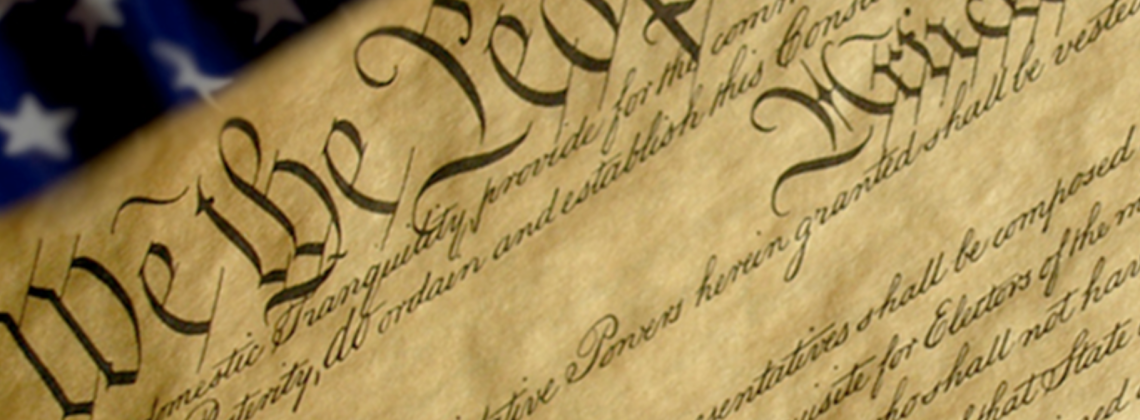 We the Peo
domestic Tranquility, provide for the comm
Posterity, do ordain and establish this Cons
Article
slative Powers herein granted shall be vested
sentatives shall be composed
uisite for Electors of the m
ho shall not hav
that State